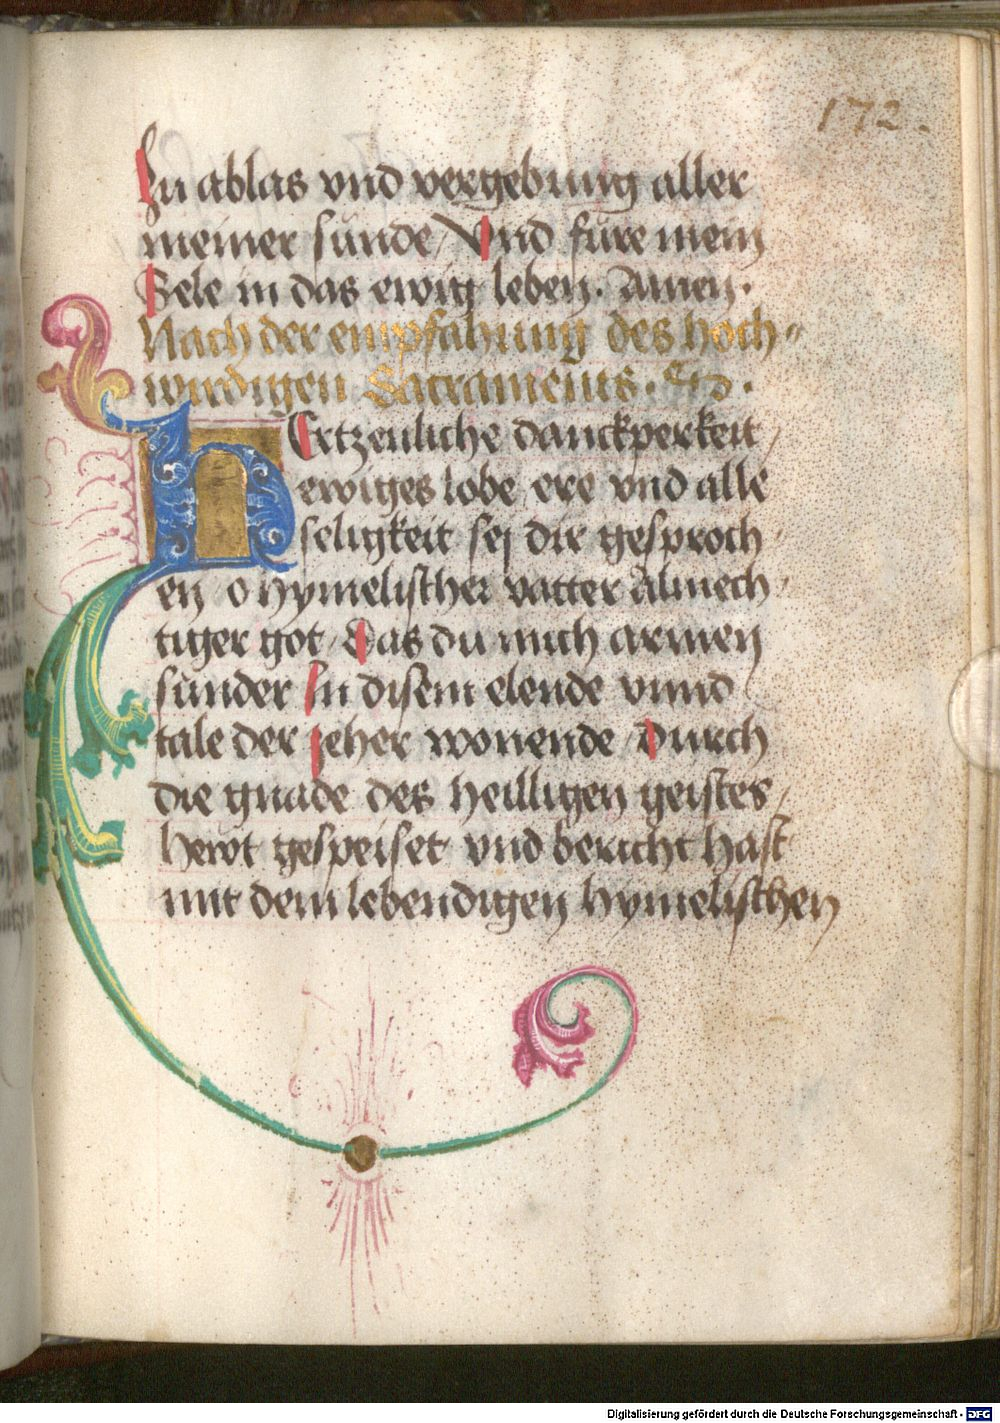 172.
Zu ablas vnd vergebung aller
meiner sünde / Vnd füre mein
Sele in das ewig leben. Amen.
Nach der empfahung des hoch-
wirdigen Sacraments. Etc.
HErtzenliche danckperkeit /
ewiges lobe / ere vnd alle
seligkeit sej dir gesproch-
en o hymelischer vatter Almech-
tiger got / Das du mich armen
sünder In disem elende vnnd
tale der zeher wonende / Durch
die gnade des heilligen geistes /
hewt gespeiset vnd bericht hast
mit dem lebendigen hymelischen
Digitalisierung gefördert durch die Deutsche Forschungsgemeinschaft - DFG